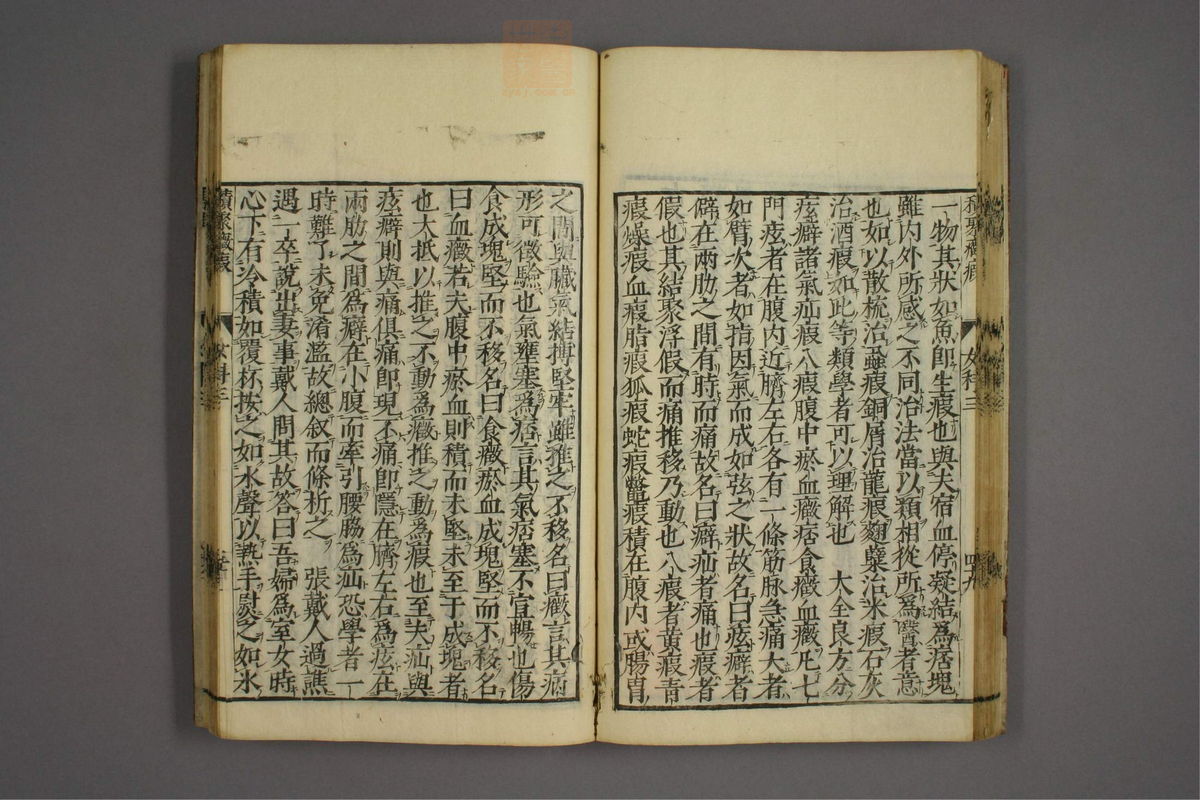 一物其狀如魚即生瘕也與夫宿血停凝結為痞塊
雖内外所感之不同治法當以類相從所為醫者意
也如以散梳治蝨瘕銅屑治龍瘕麴櫱治米瘕石灰
治酒瘕如此等類學者可以理解也　大全良方分
痃癖諸氣疝瘕八瘕腹中瘀血癥痞食癥血癥凡七
門痃者在腹内近臍左右各有一條筋脉急痛大者
如臂次者如指因氣而成如弦之狀故名曰痃癖者
僻在兩肋之間有時而痛故名曰癖疝者痛也瘕者
假也其結聚浮假而痛推移乃動也八瘕者黄瘕青
瘕燥瘕血瘕脂瘕狐瘕蛇瘕鱉瘕積在腹内或腸胃
女科三
四九
之間與臟氣結搏堅牢雖推之不移名曰癥言其病
形可徵驗也氣壅塞為痞言其氣痞塞不宣暢也傷
食成塊堅而不移名曰食癥瘀血成塊堅而不移名
曰血癥若夫腹中瘀血則積而未堅未至于成塊者
也大抵以推之不動為癥推之動為瘕也至夫疝與
痃癖則與痛俱痛即現不痛即隱在臍左右為痃在
兩肋之間為癖在小腹而牽引腰脇為疝恐學者一
時難了未免淆濫故總叙而條析之　張戴人過譙
遇一卒說出妻事戴人問其故答曰吾婦為室女時
心下有冷積如覆杯按之如水聲以熱手熨之如氷
積聚癥瘕